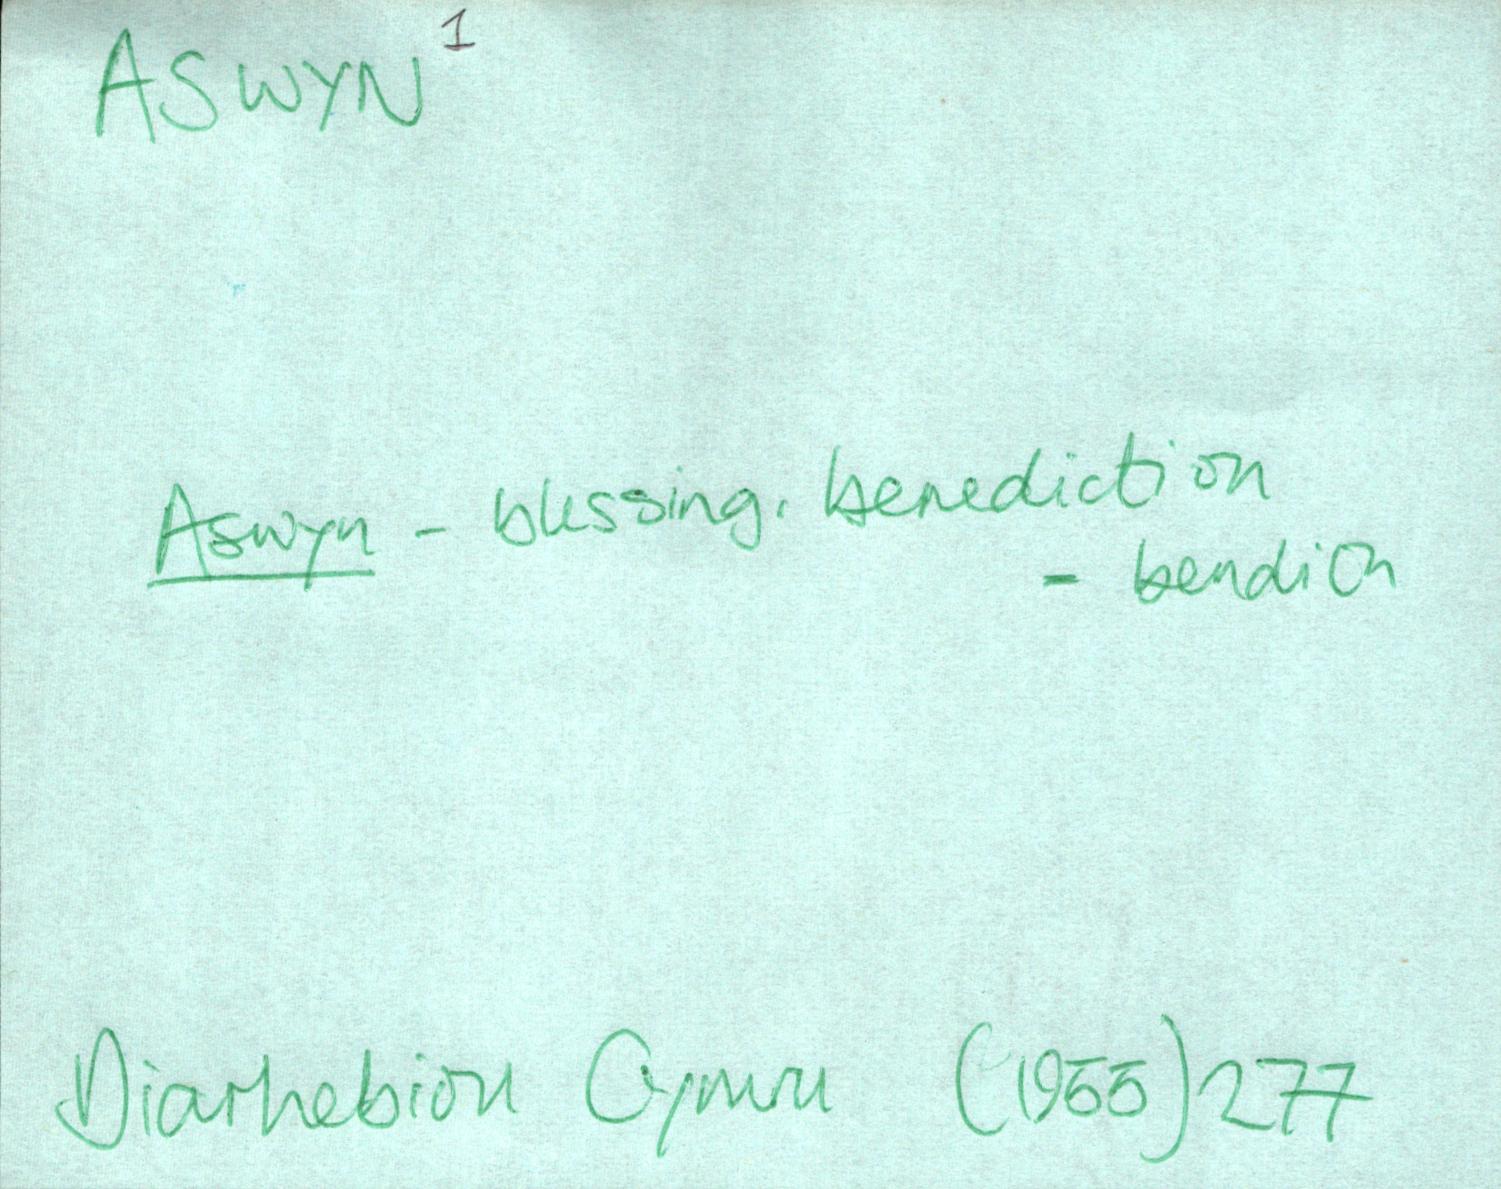 ASWYN¹
Aswyn - blessing, benediction
- bendith
Diarhebion Cymru (1955) 277